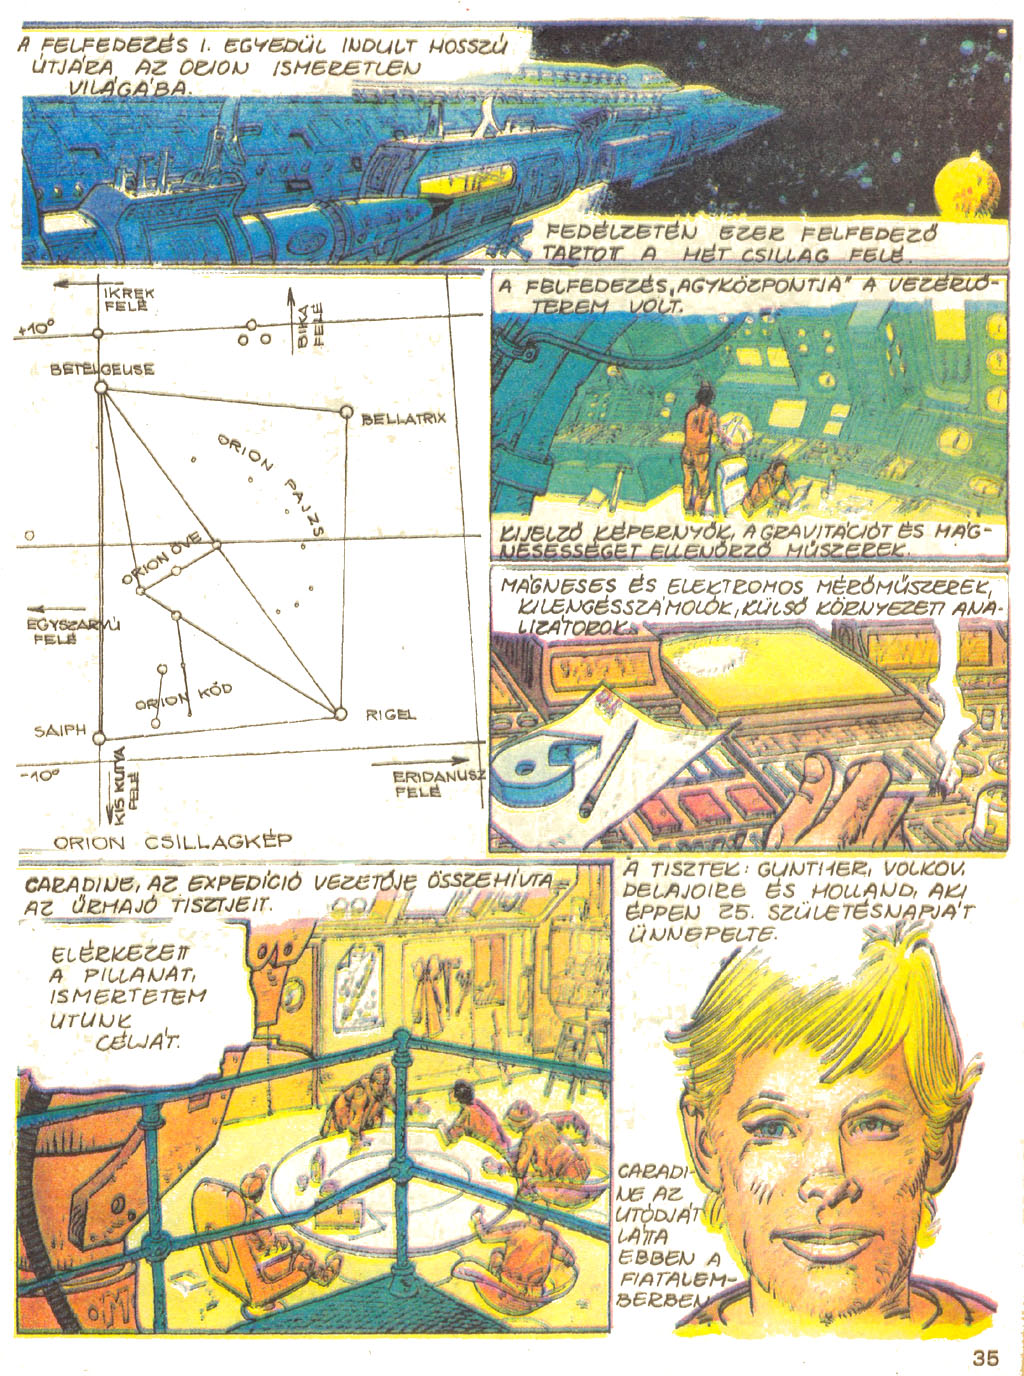 A FELFEDEZÉS I. EGYEDÜL INDULT HOSSZÚ
ÚTJÁRA AZ ORION ISMERETLEN
VILÁGÁBA.
FEDÉLZETÉN EZER FELFEDEZŐ
TARTOTT A HÉT CSILLAG FELÉ.
IKREK
FELÉ
BIKA
FELÉ
+10°
BETELGEUSE
BELLATRIX
ORION PAJZS
0
ORION ÖVE
EGYSZARVÚ
FELÉ
ORION KÖD
SAIPH
RIGEL
-10°
KIS KUTYA
FELÉ
ERIDANUSZ
FELÉ
ORION CSILLAGKÉP
A FELFEDEZÉS „AGYKÖZPONTJA" A VEZÉRLŐ-
TEREM VOLT.
KIJELZŐ KÉPERNYŐK, A GRAVITÁCIÓT ÉS MÁG-
NESESSÉGET ELLENŐRZŐ MŰSZEREK.
MÁGNESES ÉS ELEKTROMOS MÉRŐMŰSZEREK,
KILENGÉSSZÁMOLÓK, KÜLSŐ KÖRNYEZETI ANA-
LIZÁTOROK.
CARADINE, AZ EXPEDÍCIÓ VEZETŐJE ÖSSZEHÍVTA
AZ ŰRHAJÓ TISZTJEIT.
ELÉRKEZETT
A PILLANAT,
ISMERTETEM
UTUNK
CÉLJÁT.
A TISZTEK: GUNTHER, VOLKOV,
DELAJOIRE ÉS HOLLAND, AKI
ÉPPEN 25. SZÜLETÉSNAPJÁT
ÜNNEPELTE.
CARADI-
NE AZ
UTÓDJÁT
LÁTTA
EBBEN A
FIATALEM-
BERBEN
35